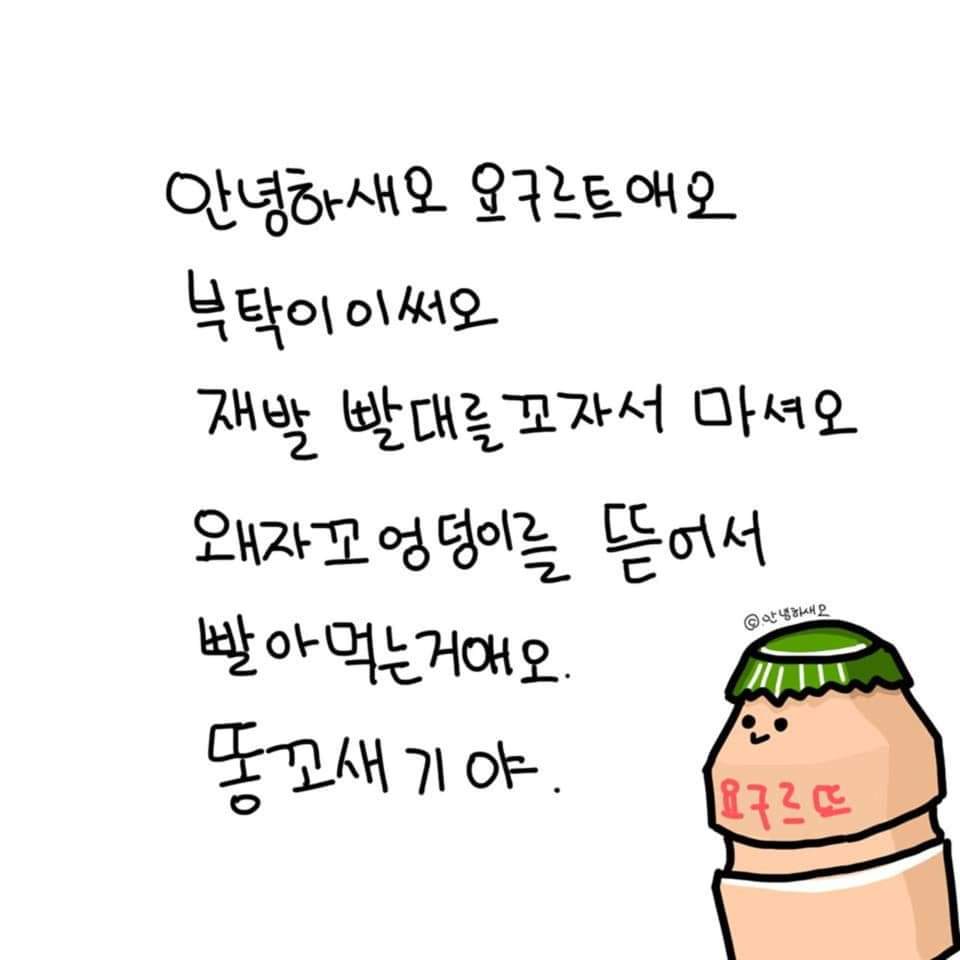 안녕하새오 요구르트애오
부탁이 이써오
재발 빨대를 꼬자서 마셔오
왜자꼬 엉덩이를 뜯어서
빨아먹는거애오.
똥꼬새기야.
©.안녕하새오
요구르뜨